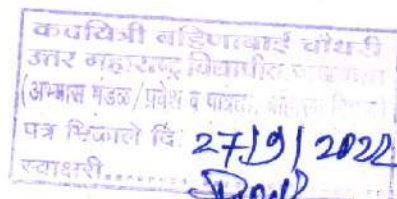 कवयित्री बहिणाबाई चौधरी
उत्तर महाराष्ट्र विद्यापीठ, जळगाव
(अभ्यास मंडळ/प्रवेश व पात्रता,
पत्र मिळाले दि. 27/9/2022
स्वाक्षरी